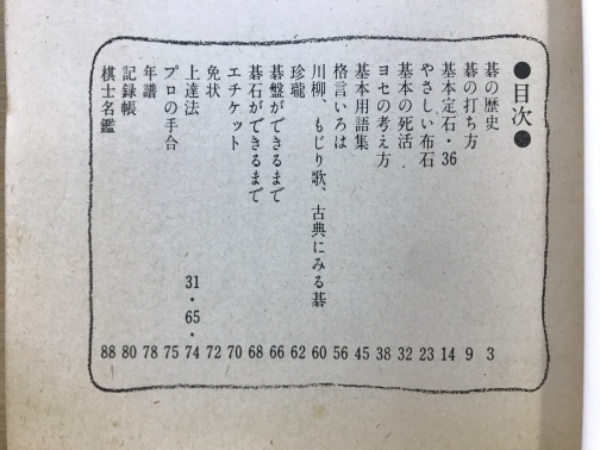 ●目次●
碁の歴史 3
碁の打ち方 9
基本定石・36 14
やさしい布石 23
基本の死活 32
ヨセの考え方 38
基本用語集 45
格言いろは 56
川柳、もじり歌、古典にみる碁 60
珍瓏 62
碁盤ができるまで 66
碁石ができるまで 68
エチケット 70
免状 72
上達法 31・65・74
プロの手合 75
年譜 78
記録帳 80
棋士名鑑 88